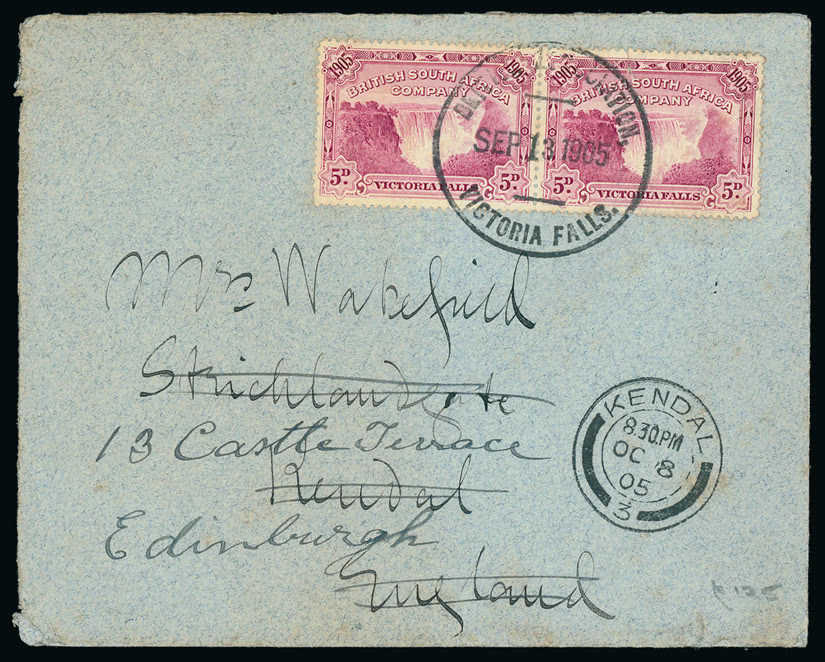 1905 1905
BRITISH SOUTH AFRICA
COMPANY
5D. VICTORIA FALLS 5D.
1905 1905
BRITISH SOUTH AFRICA
COMPANY
5D. VICTORIA FALLS 5D.
SEP 13 1905
VICTORIA FALLS.
Mrs Wakefield
Stricklandgate
13 Castle Terrace
Kendal
Edinburgh
England
KENDAL
8.30.PM
OC 8
05
3